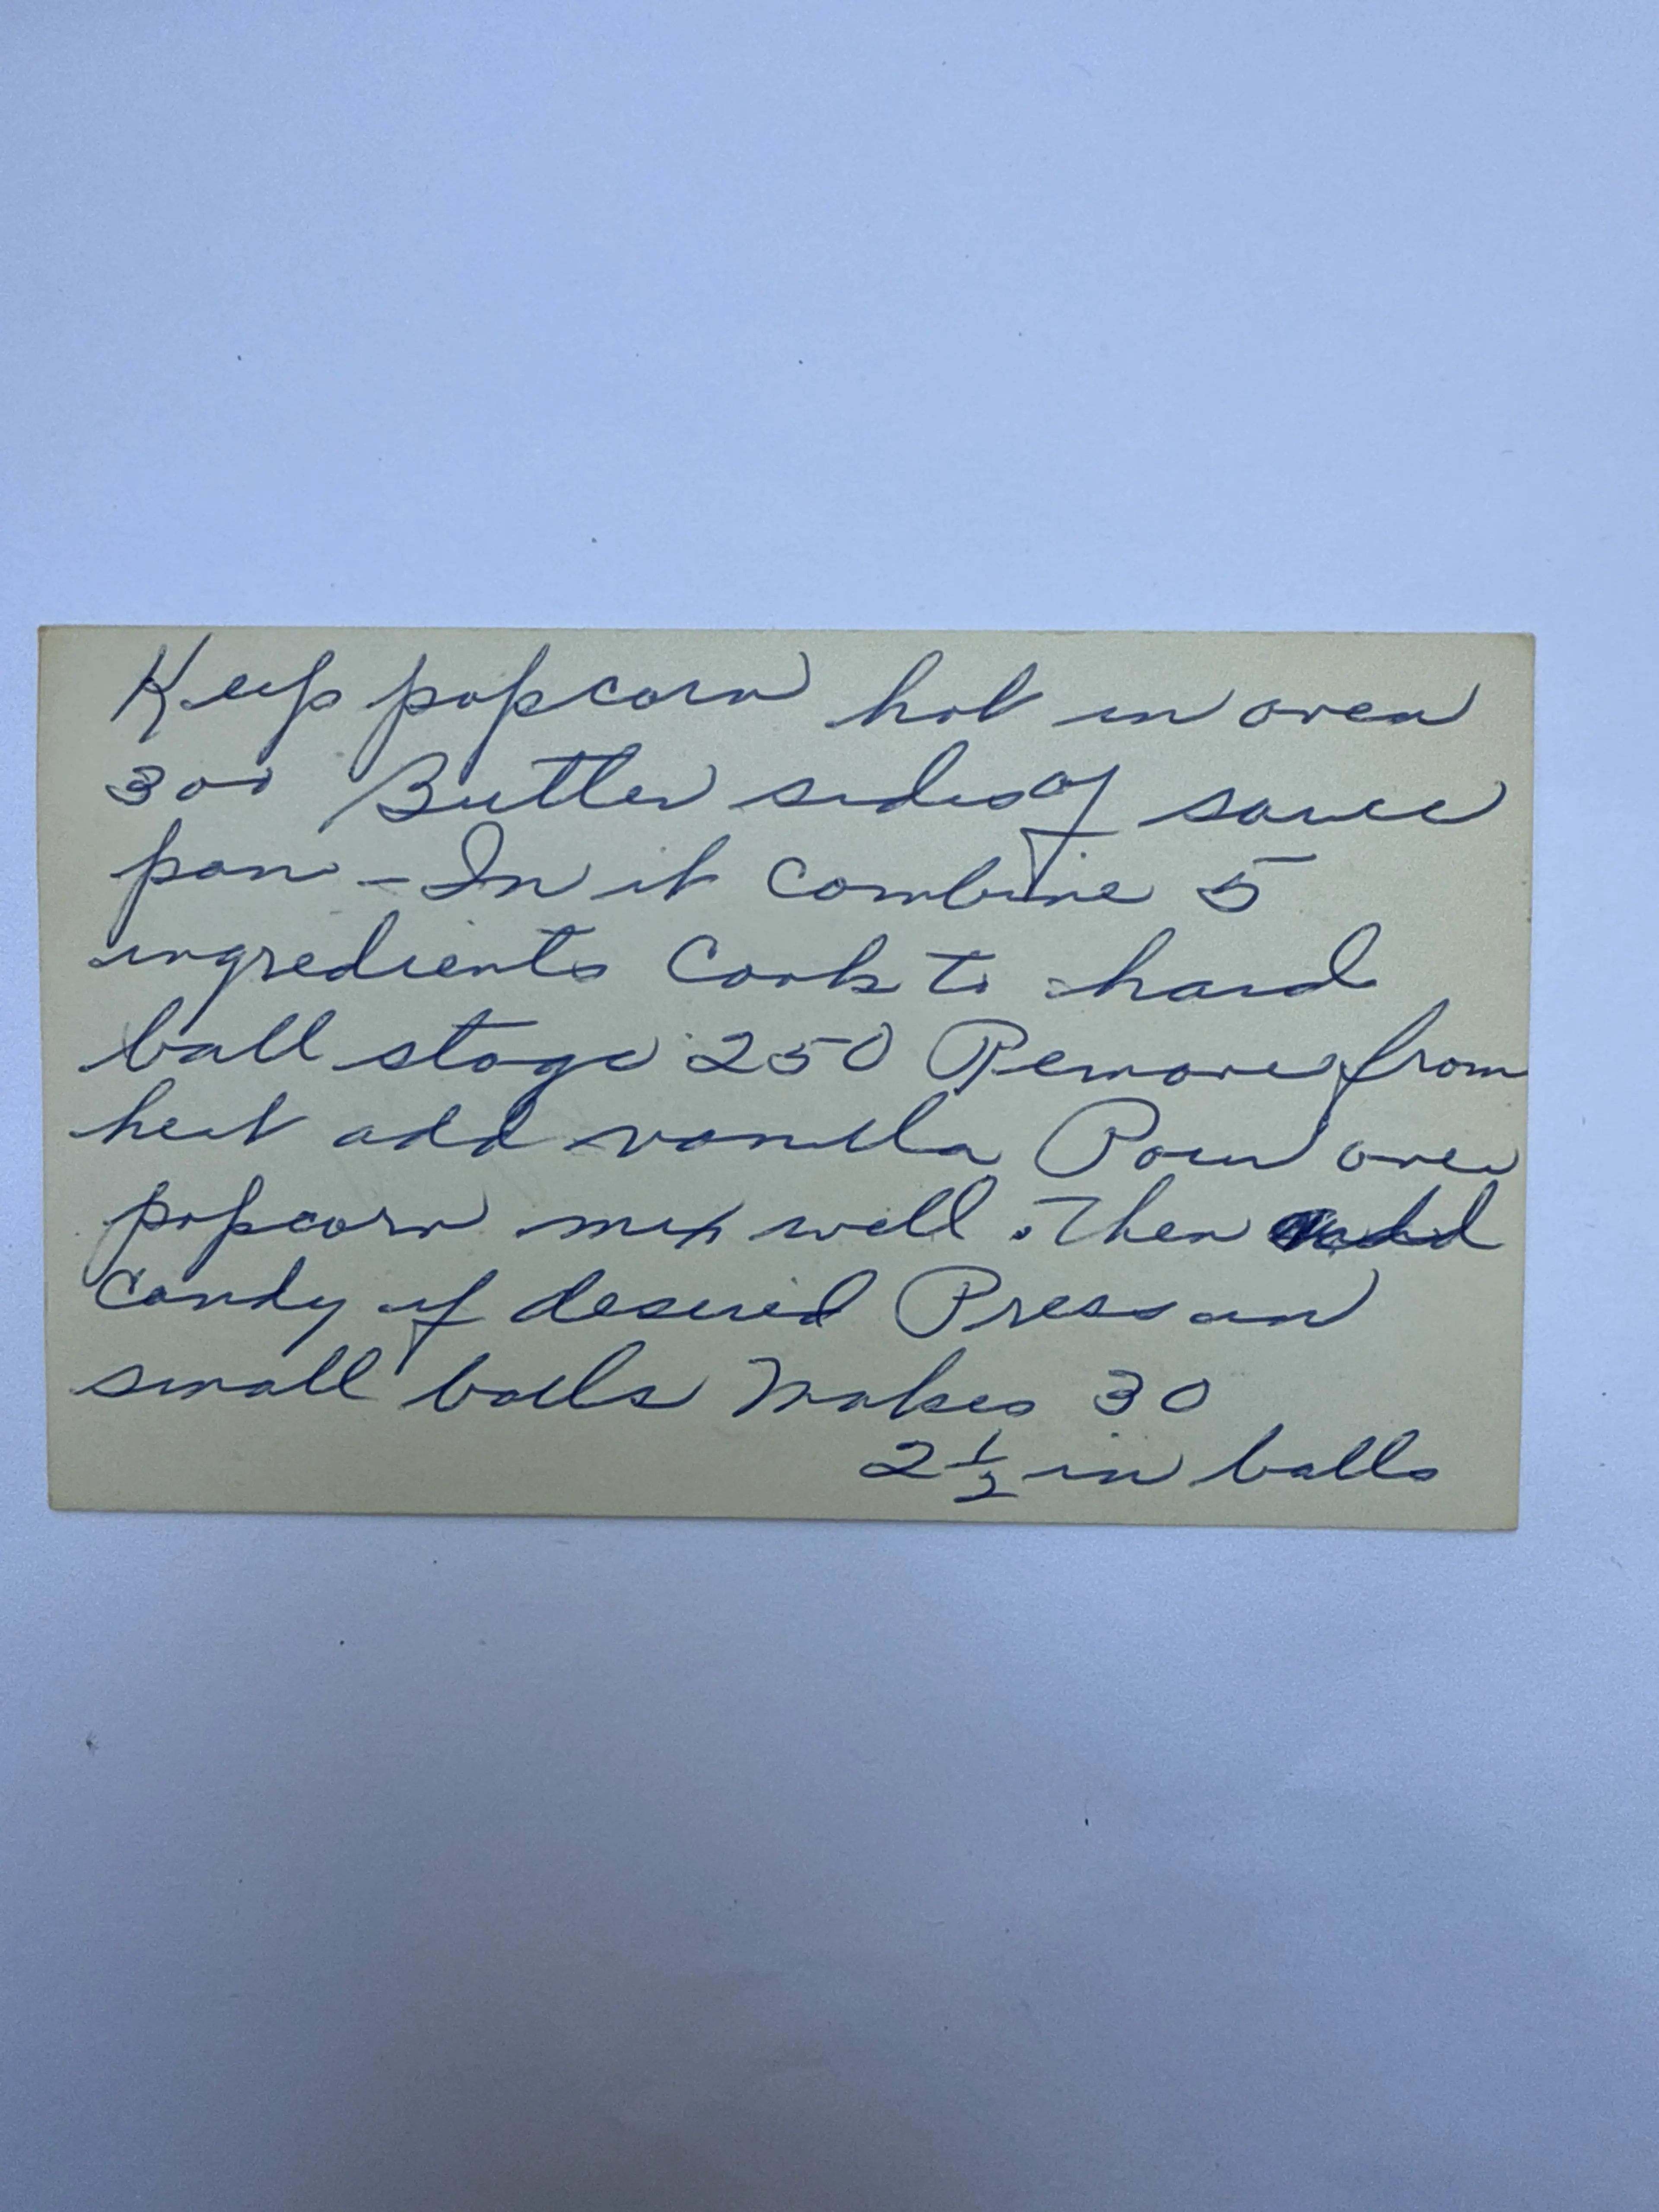 Keep popcorn hot in oven
300 Butter sides of sauce
pan - In it combine 5
ingredients Cook to hard
ball stage 250 Remove from
heat add vanilla Pour over
popcorn mix well. Then add
candy if desired Press in
small balls Makes 30
2 1/2 in balls